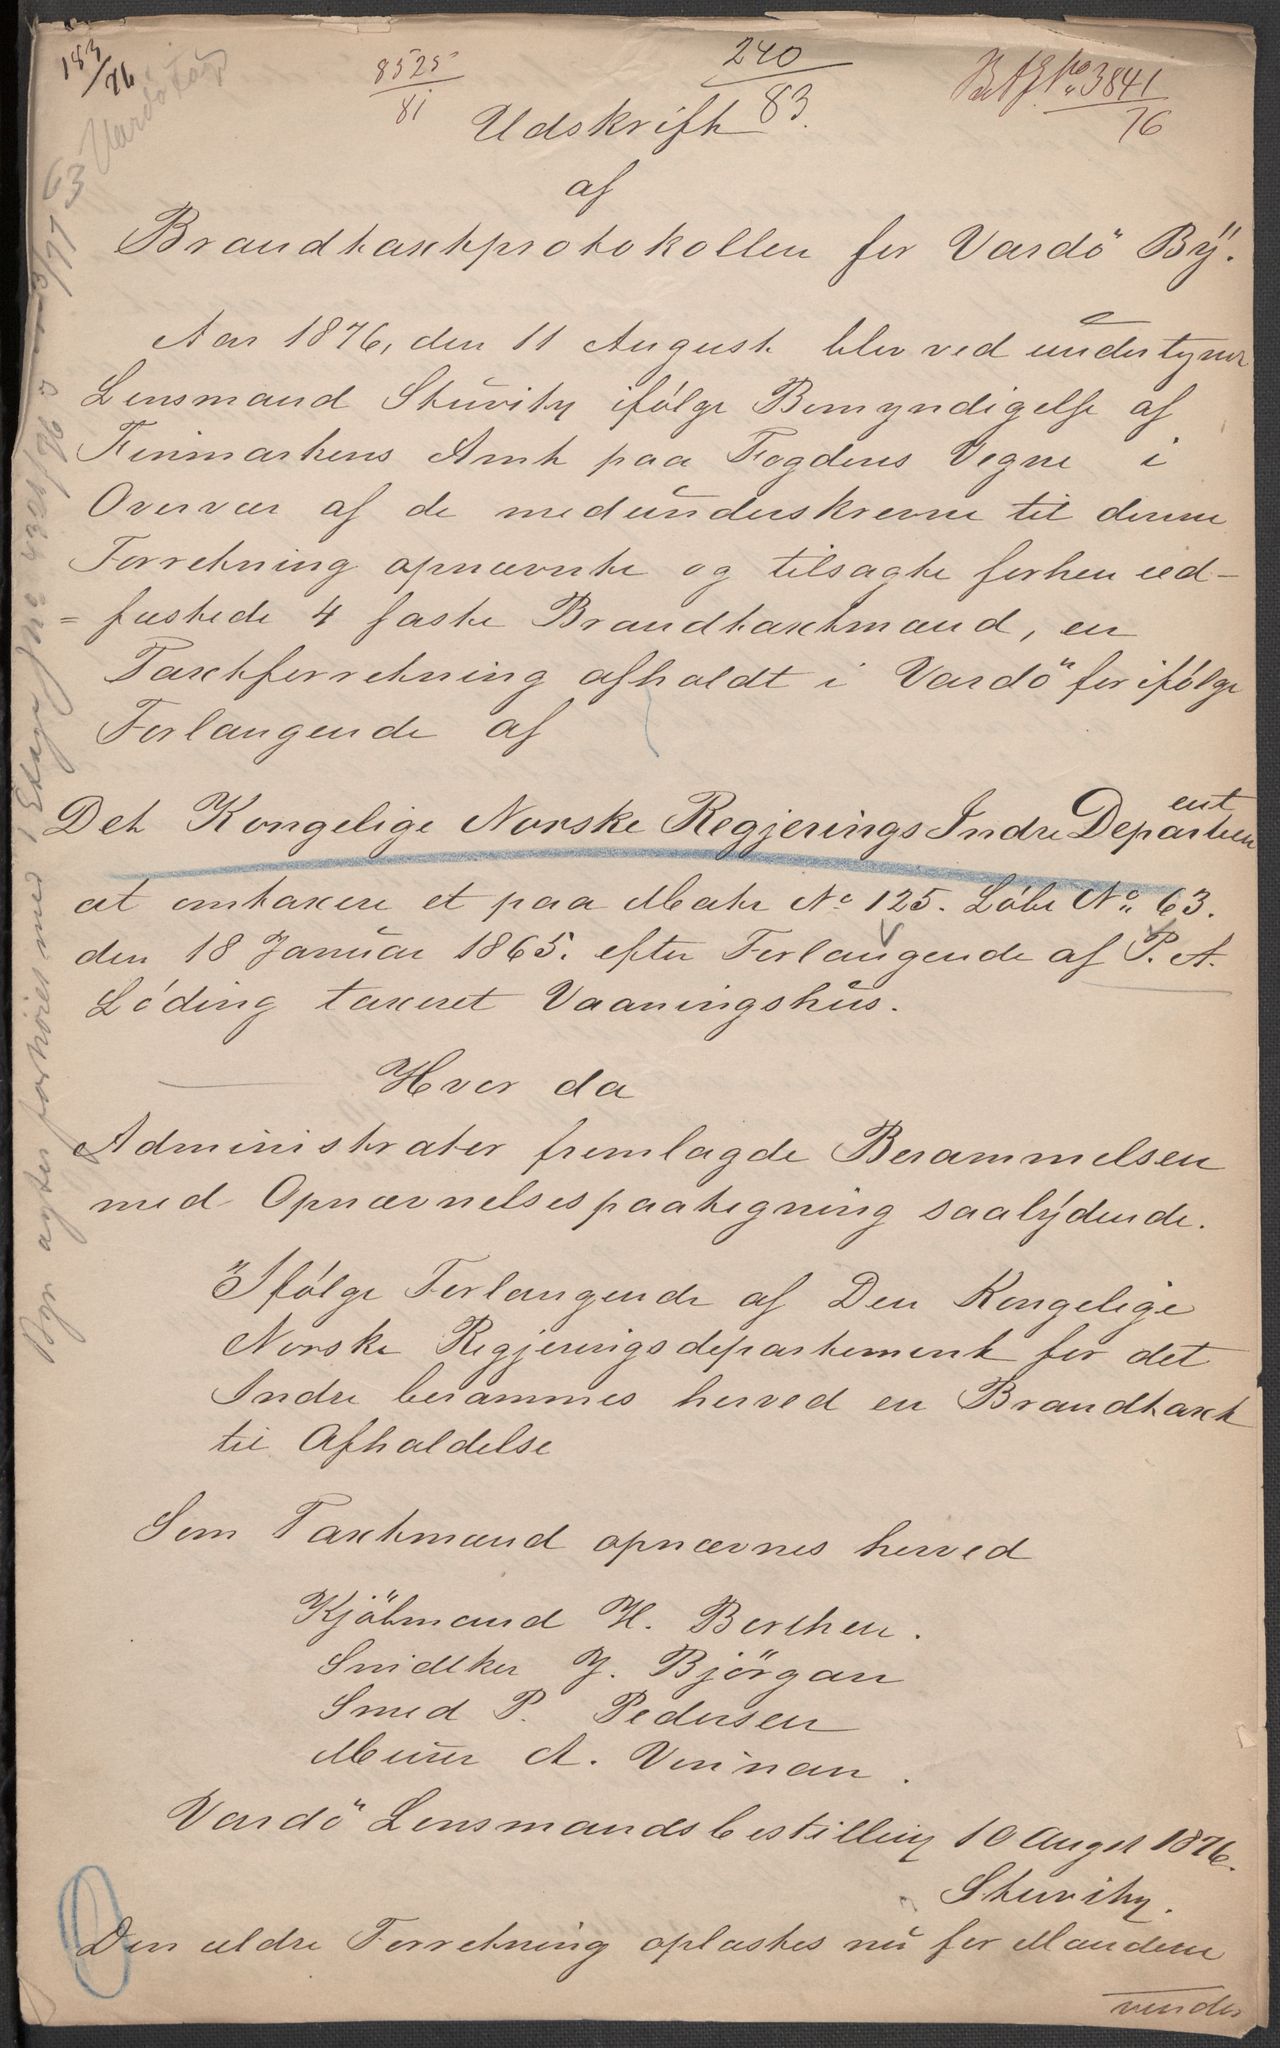 183/76
Vardö
8525/81
240/83
BAf No 3841/76
Udskrift
af
Brandtaxtprotokollen for Vardö By.
Aar 1876, den 11 August blev ved undertegn
Lensmand Sturitz ifølge Bemyndigelse af
Finmarkens Amt paa Fogdens Vegne i
Overvær af de medunderskrevne til denne
Forretning opnævnte og tilsagte forhen eed-
= fæstede 4 faste Brandtaxtmænd, en
Taxtforretning afholdt i Vardö for ifølge
Forlangende af
Det Kongelige Norske Regjerings Indre Departement
at omtaxere et paa Matr No 125. Løbe No 63.
den 18 Januar 1865. efter Forlangende af P. A.
Löding taxeret Vaaningshus.
Hvor da
Administrator fremlagde Berammelsen
med Opnævnelsespaategning saalydende.
"Ifølge Forlangende af Den Kongelige
Norske Regjeringsdepartement for det
Indre berammes herved en Brandtaxt
til Afholdelse
Som Taxtmænd opnævnes herved
Kjöbmand H. Borchen.
Snidker J. Björgan
Smed P. Pedersen
Murer A. Vinnan.
Vardö Lensmandsbestilling 10 Augst 1876.
Sturitz.
Den ældre Forretning oplæstes nu for Mændene
vender